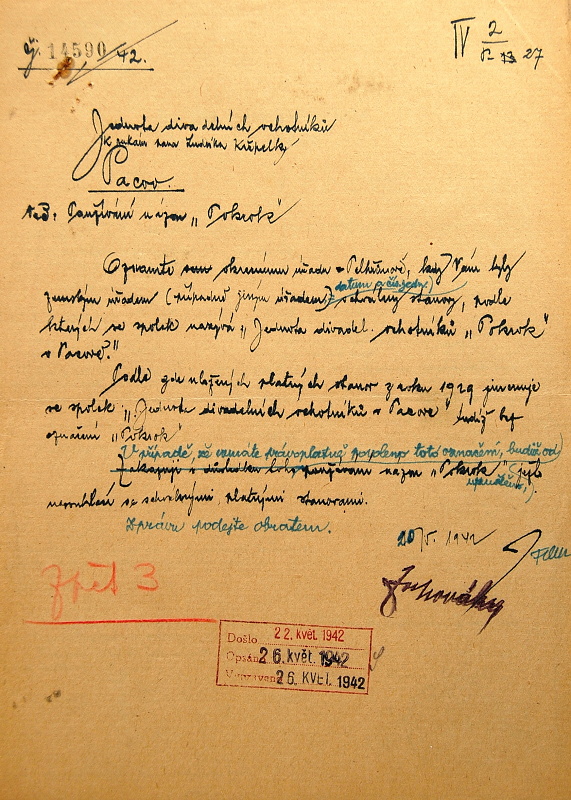 Č. 14590/42.
IV 2
27
Jednota divadelních ochotníků
K rukám pana Ludvíka Kůpelky
Pacov.
Používání názvu „Pokrok"
Oznamte okresnímu úřadu v Pelhřimově, kdy Vám byly
datum a čís. jedn.
zemským úřadem (případně jiným úřadem) schváleny stanovy, podle
kterých se spolek nazývá „Jednota divadel. ochotníků „Pokrok"
v Pacově."
Podle zde uložených platných stanov z roku 1929 jmenuje
se spolek „Jednota divadelních ochotníků v Pacově" bez
označení „Pokrok"
V případě, že nemáte právoplatně povoleno toto označení, budiž od
názvu „Pokrok"
upuštěno,
nesouhlasí se schválenými, platnými stanovami.
Zprávu podejte obratem.
20/5. 1942
Zpět 3
Došlo 22. květ. 1942
Opsáno 26. květ. 1942
Vypraveno 26. KVĚT. 1942